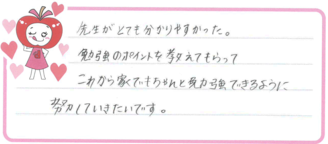 先生がとても分かりやすかった。
勉強のポイントを教えてもらって
これから家でもちゃんと勉強できるように
努力していきたいです。